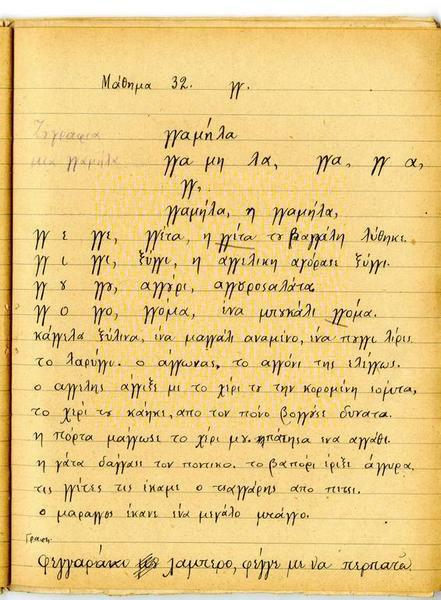 Μάθημα 32. γγ.
Ζυγραφια γγαμήλα
μια γγαμήλα γγα μη λα, γγα, γγ α,
γγ,
γγαμήλα, η γγαμήλα,
γγ ε γγε, γγέτα, η γγέτα τυ βαγγέλη λύθηκε.
γγ ι γγι, ξύγγι, η αγγελικη αγόρασε ξύγγι.
γγ υ γγυ, αγγύρι, αγγυροσαλάτα
γγ ο γγο, γγομα, ένα μπυκάλι γγόμα.
κάγγελα ξύλινα, ένα μαγγάλι αναμένο, ένα πυγγι λίρις.
το λαρύγγι. ο αγγωνας, το αγγόνι της ελέγγως.
ο αγγελης άγγιξε με το χέρι τυ την κορομένη σόμπα,
το χέρι τυ κάηκι, απο τον πόνο βογγυσε δυνατα.
η πόρτα μάγγωσε το χέρι μυ. πάτησα ενα αγγάθι.
η γάτα δάγγασε τον ποντικο. το βαπόρι έριξε άγγυρα.
τις γγέτες τις έκαμε ο τσαγγάρης απο πετσι.
ο μαραγγος έκανε ένα μεγάλο μπάγγο.
Γραφη
φεγγαράκι λαμπερο, φέγγε με να περπατω